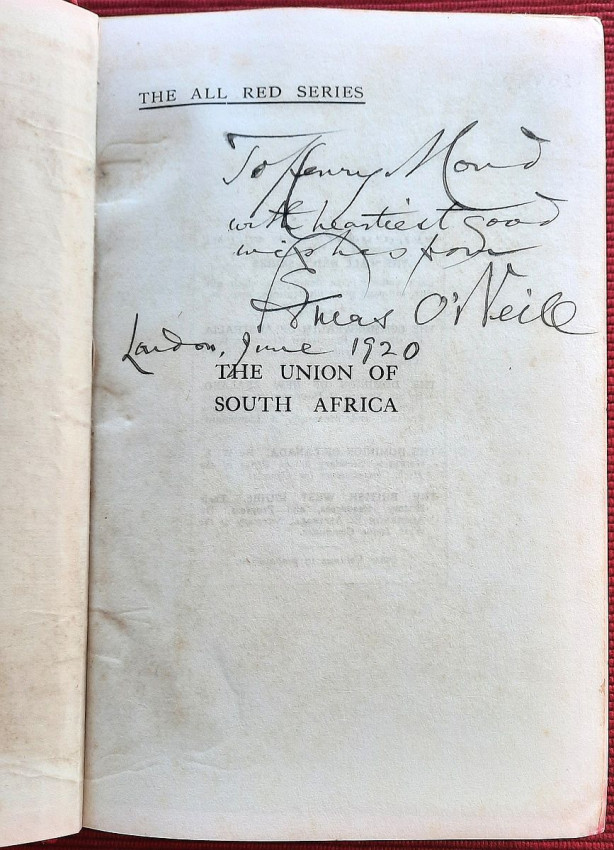 THE ALL RED SERIES
To Henry Mond
with heartiest good
wishes from
Eneas O'Neill
London, June 1920
THE UNION OF
SOUTH AFRICA